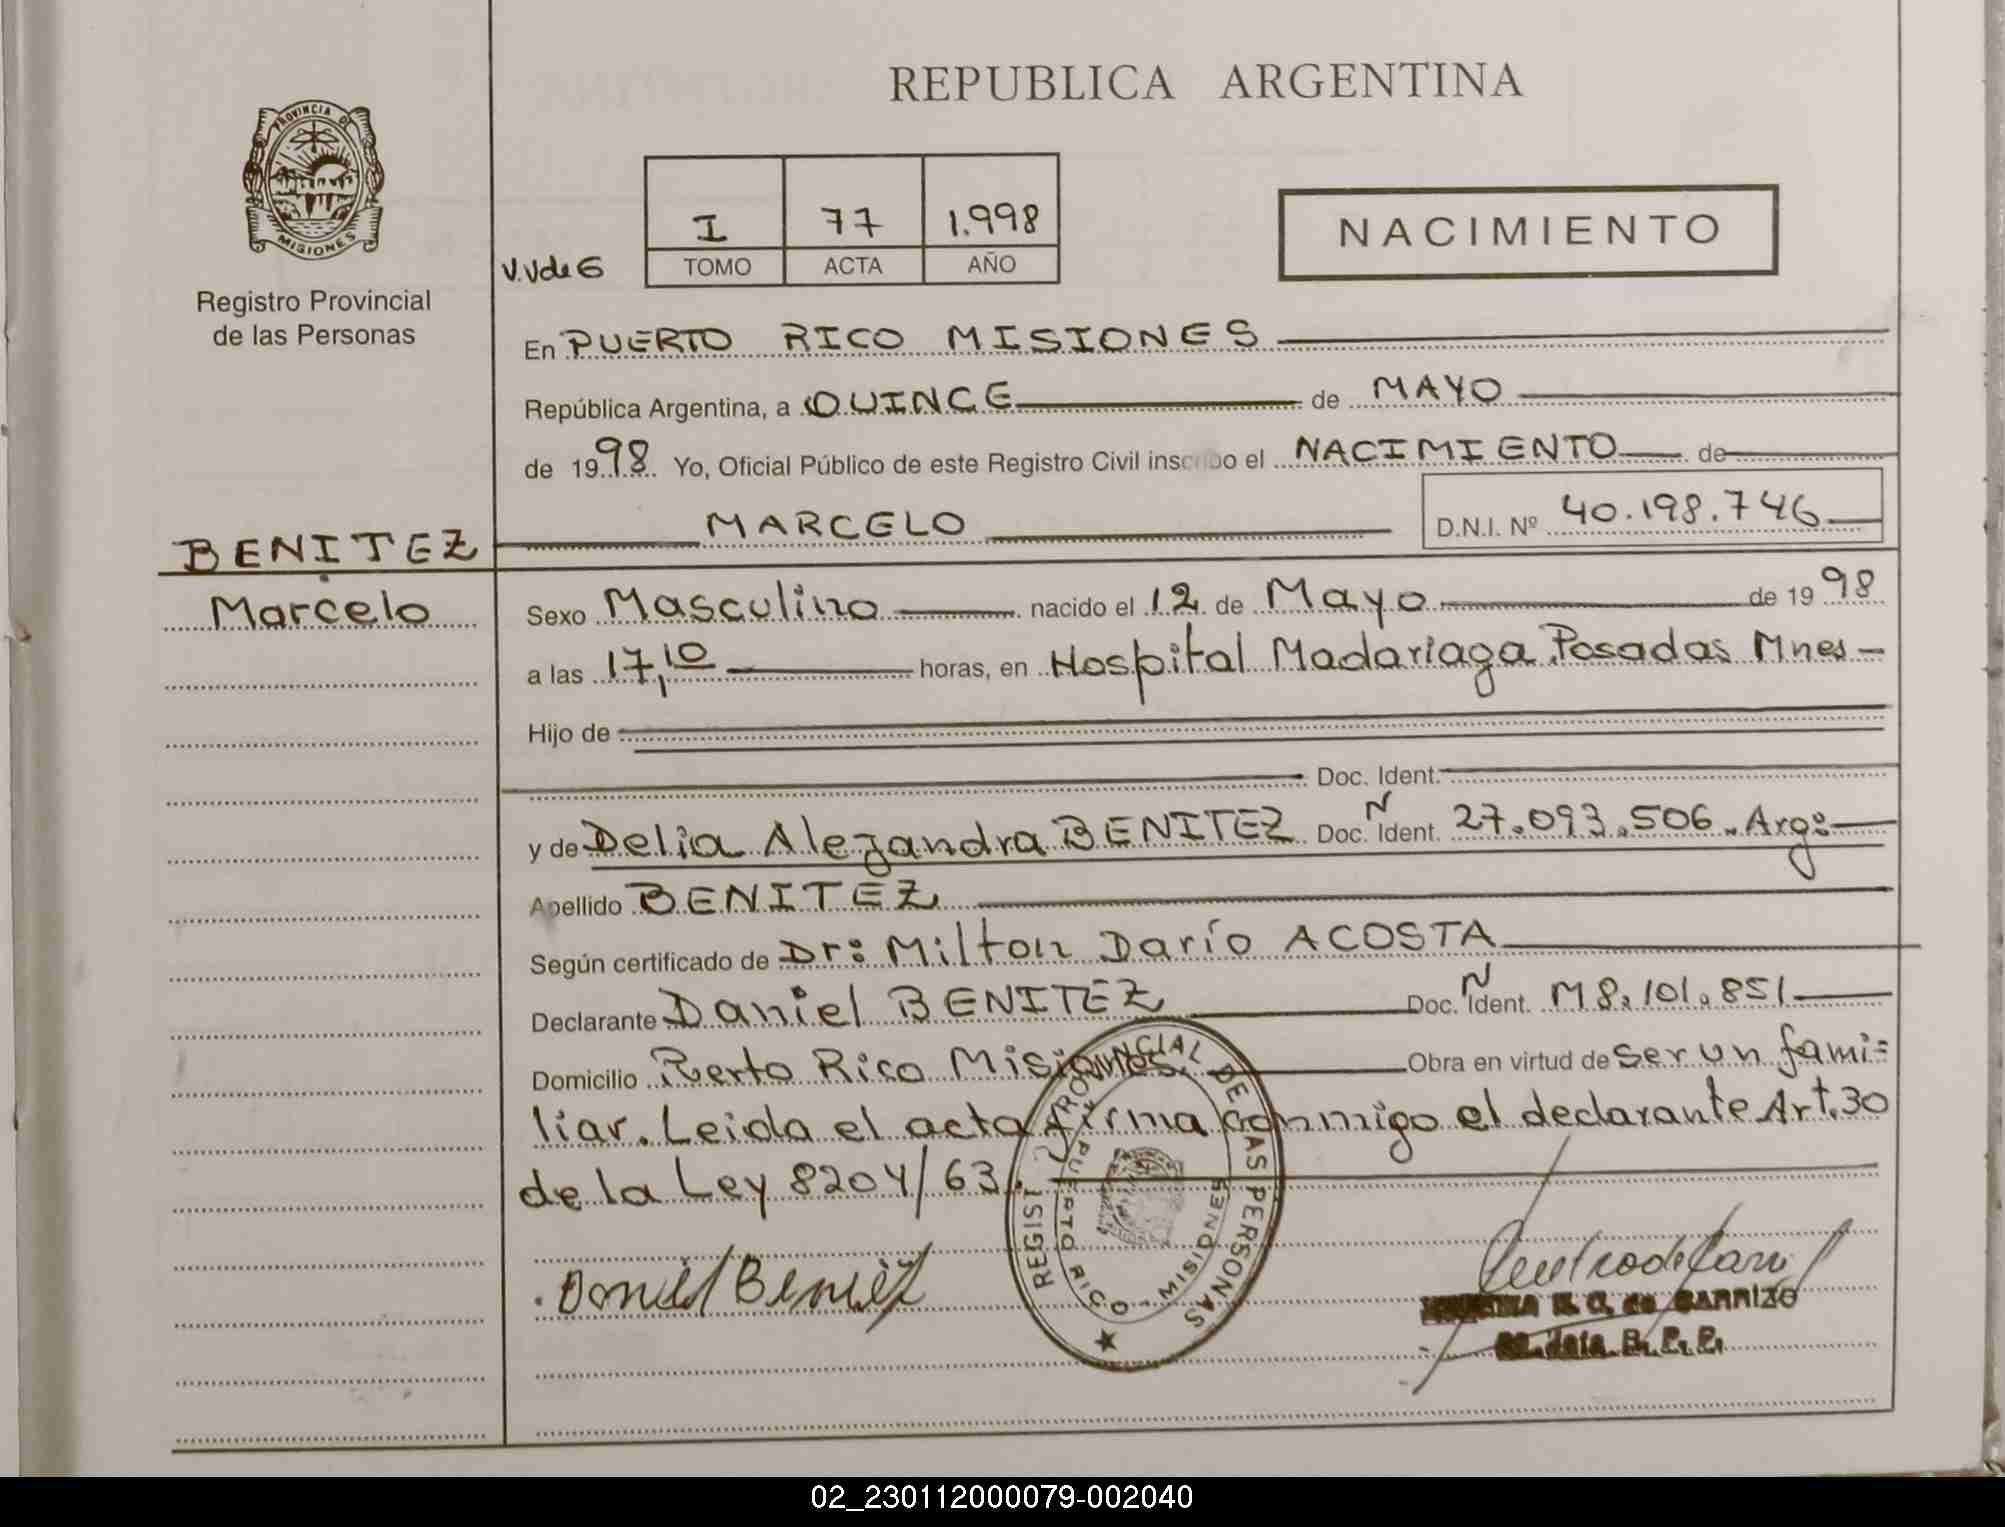 REPUBLICA ARGENTINA
PROVINCIA DE
MISIONES
Registro Provincial
de las Personas
V.V de 6
I 77 1.998
TOMO ACTA AÑO
NACIMIENTO
En PUERTO RICO MISIONES
República Argentina, a QUINCE de MAYO
de 1998. Yo, Oficial Público de este Registro Civil inscribo el NACIMIENTO de
MARCELO D.N.I. Nº 40.198.746
BENITEZ
Marcelo
Sexo Masculino nacido el 12 de Mayo de 1998
a las 17,10 horas, en Hospital Madariaga Posadas Mnes-
Hijo de
Doc. Ident.
y de Delia Alejandra BENITEZ Doc. Ident. N 27.093.506. Arg:
Apellido BENITEZ
Según certificado de Dr: Milton Darío ACOSTA
Declarante Daniel BENITEZ Doc. Ident. N M 8.101.851
Domicilio Puerto Rico Misiones. Obra en virtud de ser un fami=
liar. Leida el acta firma conmigo el declarante Art. 30
de la Ley 8204/63.
REGIST PROVINCIAL DE LAS PERSONAS
PUERTO RICO - MISIONES
Daniel Benitez
R. C. de CARRIZO
R. P. P.
02_230112000079-002040